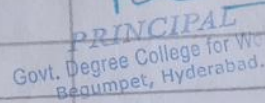 PRINCIPAL
Govt. Degree College for
Begumpet, Hyderabad.